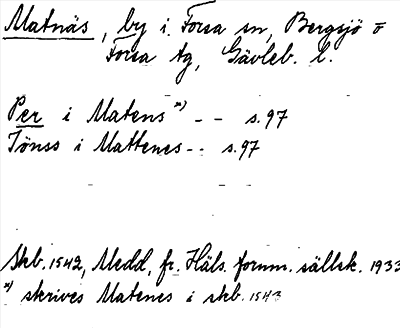 Matnäs, by i Forsa sn, Bergsjö o
Forsa tg, Gävleb. l.
Per i Matens *) - - s. 97
Tönss i Mattenes - - s. 97
Skb. 1542, Medd. fr. Häls. fornm. sällsk. 1933
*) skrives Matenes i skb. 1543